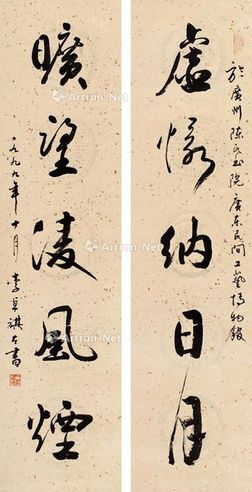 於廣州陳氏書院廣東民間工藝博物館
虛懷納日月
曠望凌風煙
一九九九年十月 李卓祺左書
Artron.Net
Artron.Net
Artron.Net
Artron.Net